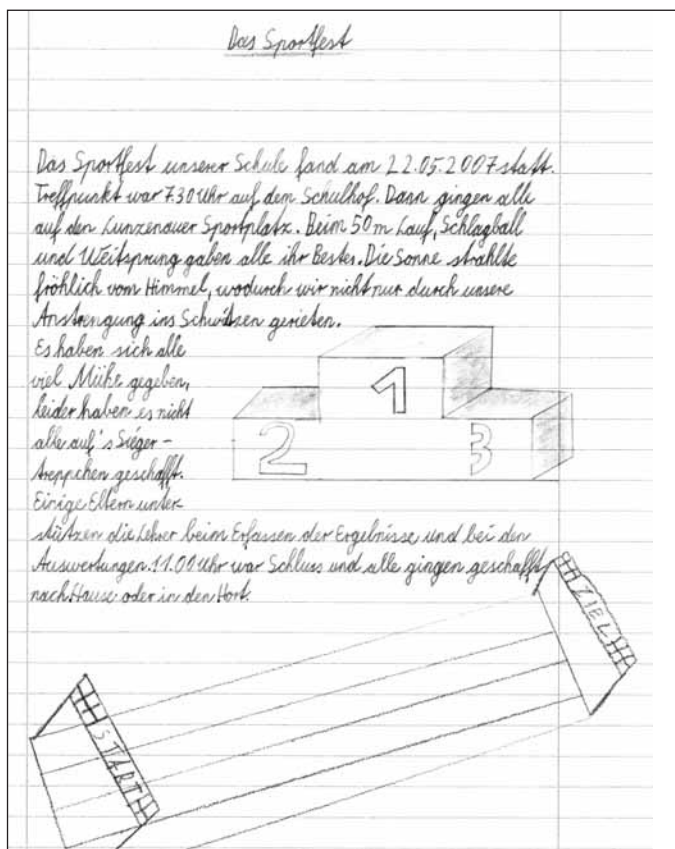 Das Sportfest
Das Sportfest unserer Schule fand am 22.05.2007 statt.
Treffpunkt war 7.30 Uhr auf dem Schulhof. Dann gingen alle
auf den Lunzenauer Sportplatz. Beim 50 m Lauf, Schlagball
und Weitsprung gaben alle ihr Bestes. Die Sonne strahlte
fröhlich vom Himmel, wodurch wir nicht nur durch unsere
Anstrengung ins Schwitzen gerieten.
Es haben sich alle
viel Mühe gegeben,
leider haben es nicht
alle auf's Sieger-
treppchen geschafft.
Einige Eltern unter-
stützen die Lehrer beim Erfassen der Ergebnisse und bei den
Auswertungen. 11.00 Uhr war Schluss und alle gingen geschafft
nach Hause oder in den Hort.
1
2
3
ZIEL
START